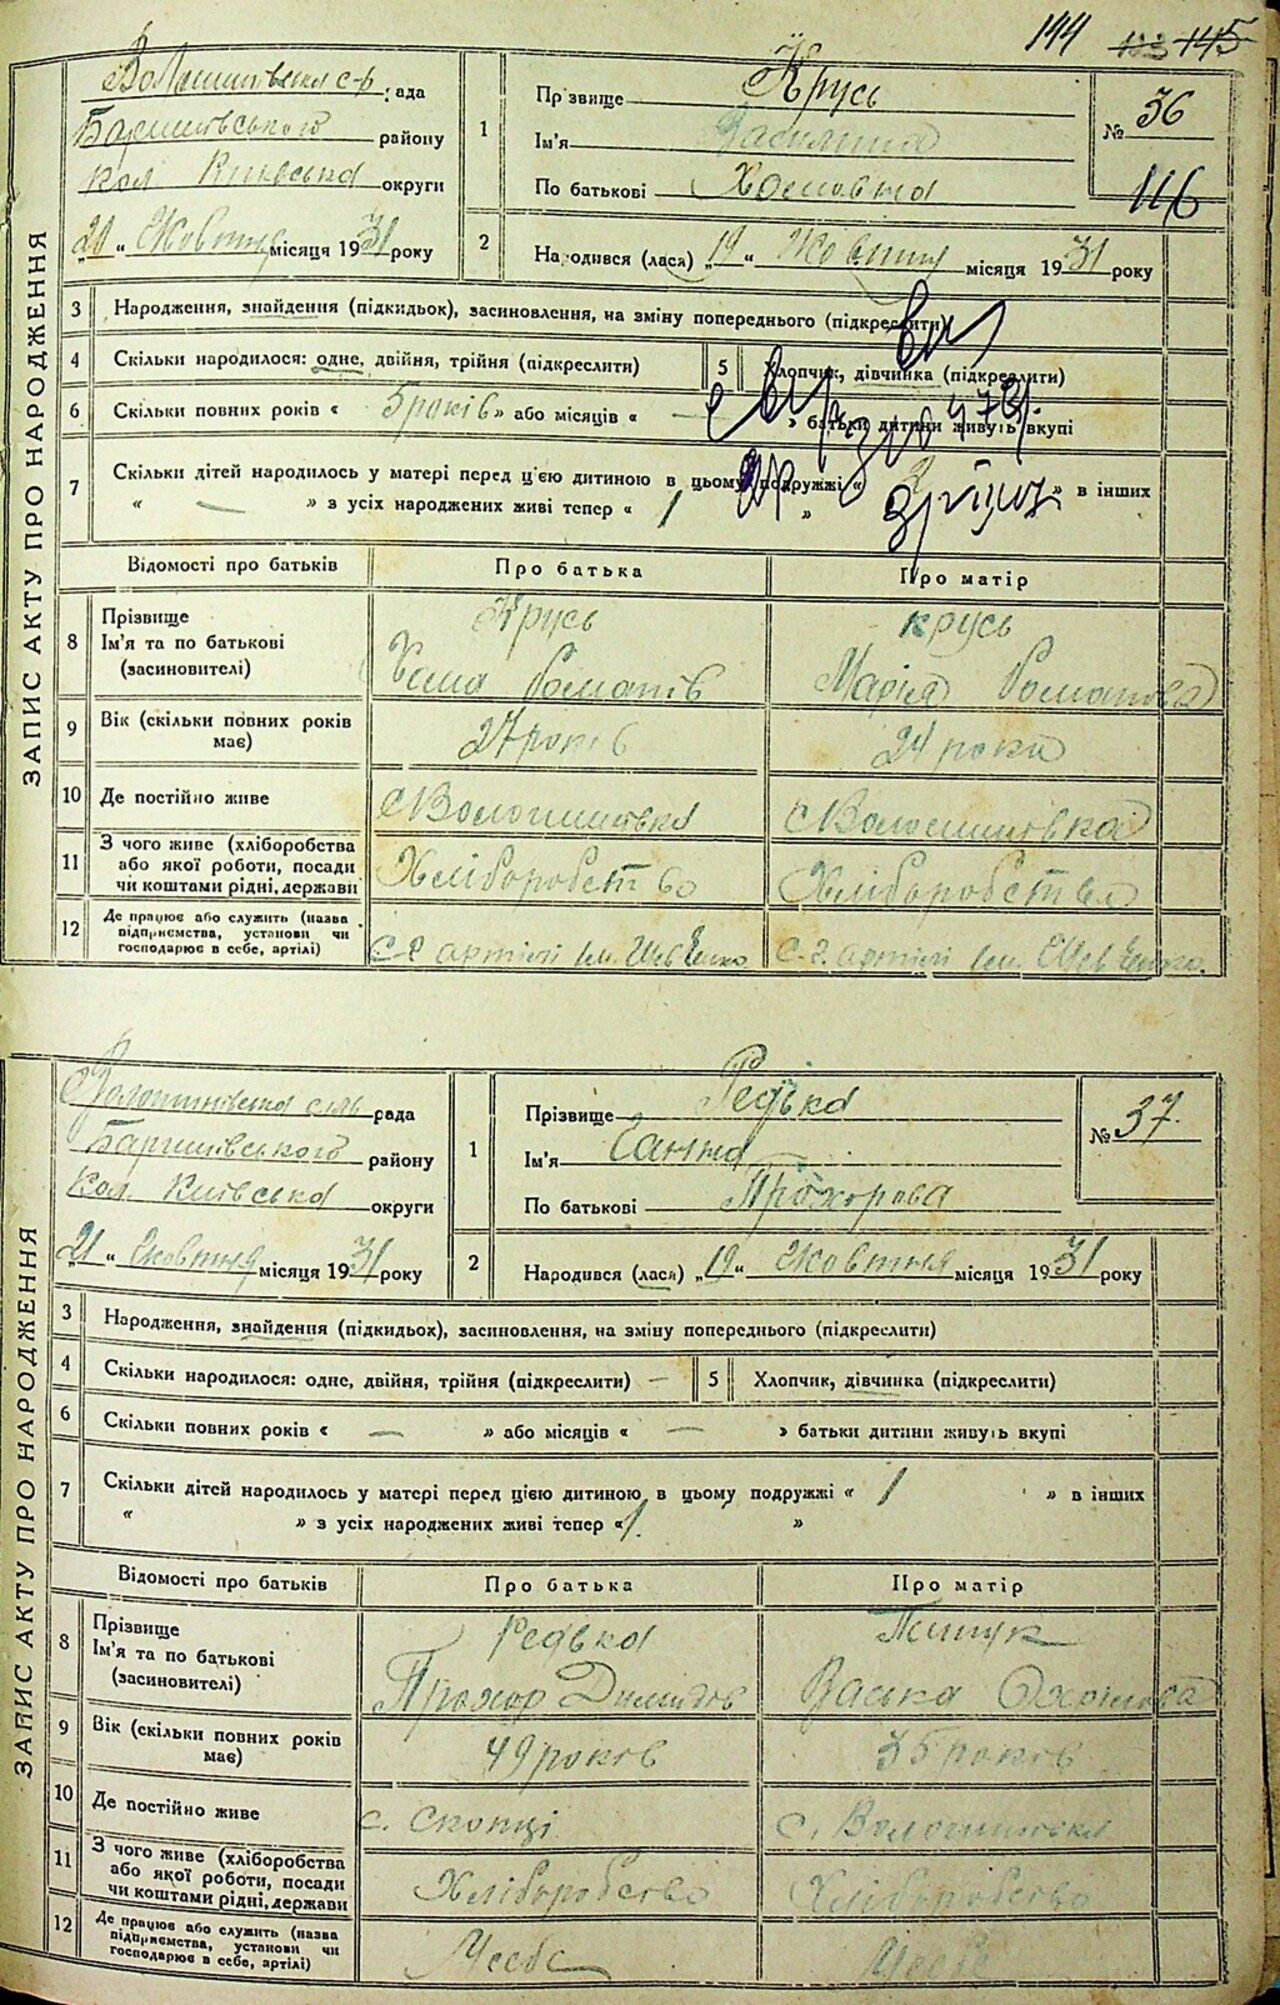 144 ~~123~~ ~~145~~
ЗАПИС АКТУ ПРО НАРОДЖЕННЯ
Волошинівська с-р рада
Баришівського району
кол Київська округи
„21“ Жовтня місяця 1931 року
1 Прізвище Крусь
Ім'я
По батькові Хомовна
№ 36
116
2 Народився (лася) „19“ Жовтня місяця 1931 року
3 Народження, знайдення (підкидьок), засиновлення, на зміну попереднього (підкреслити)
4 Скільки народилося: одне, двійня, трійня (підкреслити)
5 Хлопчик, дівчинка (підкреслити)
6 Скільки повних років « 5 років » або місяців « — » батьки дитини живуть вкупі
7 Скільки дітей народилось у матері перед цією дитиною в цьому подружжі « 2 » в інших
« — » з усіх народжених живі тепер « 1 »
Відомості про батьків Про батька Про матір
8 Прізвище Крусь крусь
Ім'я та по батькові
(засиновителі) Хома Романів Марія Романова
9 Вік (скільки повних років має) 27 років 24 роки
10 Де постійно живе с Волошинівка с Волошинівка
11 З чого живе (хліборобства
або якої роботи, посади
чи коштами рідні, держави Хліборобство Хліборобства
12 Де працює або служить (назва
підприємства, установи чи
господарює в себе, артілі) с-г артілі ім. Шевченко с-г. артілі ім. Шевченко.
ЗАПИС АКТУ ПРО НАРОДЖЕННЯ
Волошинівська сіль рада
Баришівського району
Кол. Київська округи
„21“ жовтня місяця 1931 року
1 Прізвище Редька
Ім'я Ганна
По батькові Прохорова
№ 37.
2 Народився (лася) „19“ Жовтня місяця 1931 року
3 Народження, знайдення (підкидьох), засиновлення, на зміну попереднього (підкреслити)
4 Скільки народилося: одне, двійня, трійня (підкреслити) —
5 Хлопчик, дівчинка (підкреслити)
6 Скільки повних років « — » або місяців « — » батьки дитини живуть вкупі
7 Скільки дітей народилось у матері перед цією дитиною в цьому подружжі « 1 » в інших
« » з усіх народжених живі тепер « 1. »
Відомості про батьків Про батька Про матір
8 Прізвище Редька
Ім'я та по батькові
(засиновителі) Прохор Демидів Васька
9 Вік (скільки повних років має) 49 років 35 років
10 Де постійно живе с. Скопці с. Волошинівка
11 З чого живе (хліборобства
або якої роботи, посади
чи коштами рідні, держави Хліборобство Хліборобство
12 Де працює або служить (назва
підприємства, установи чи
господарює в себе, артілі) Усебе Усебе